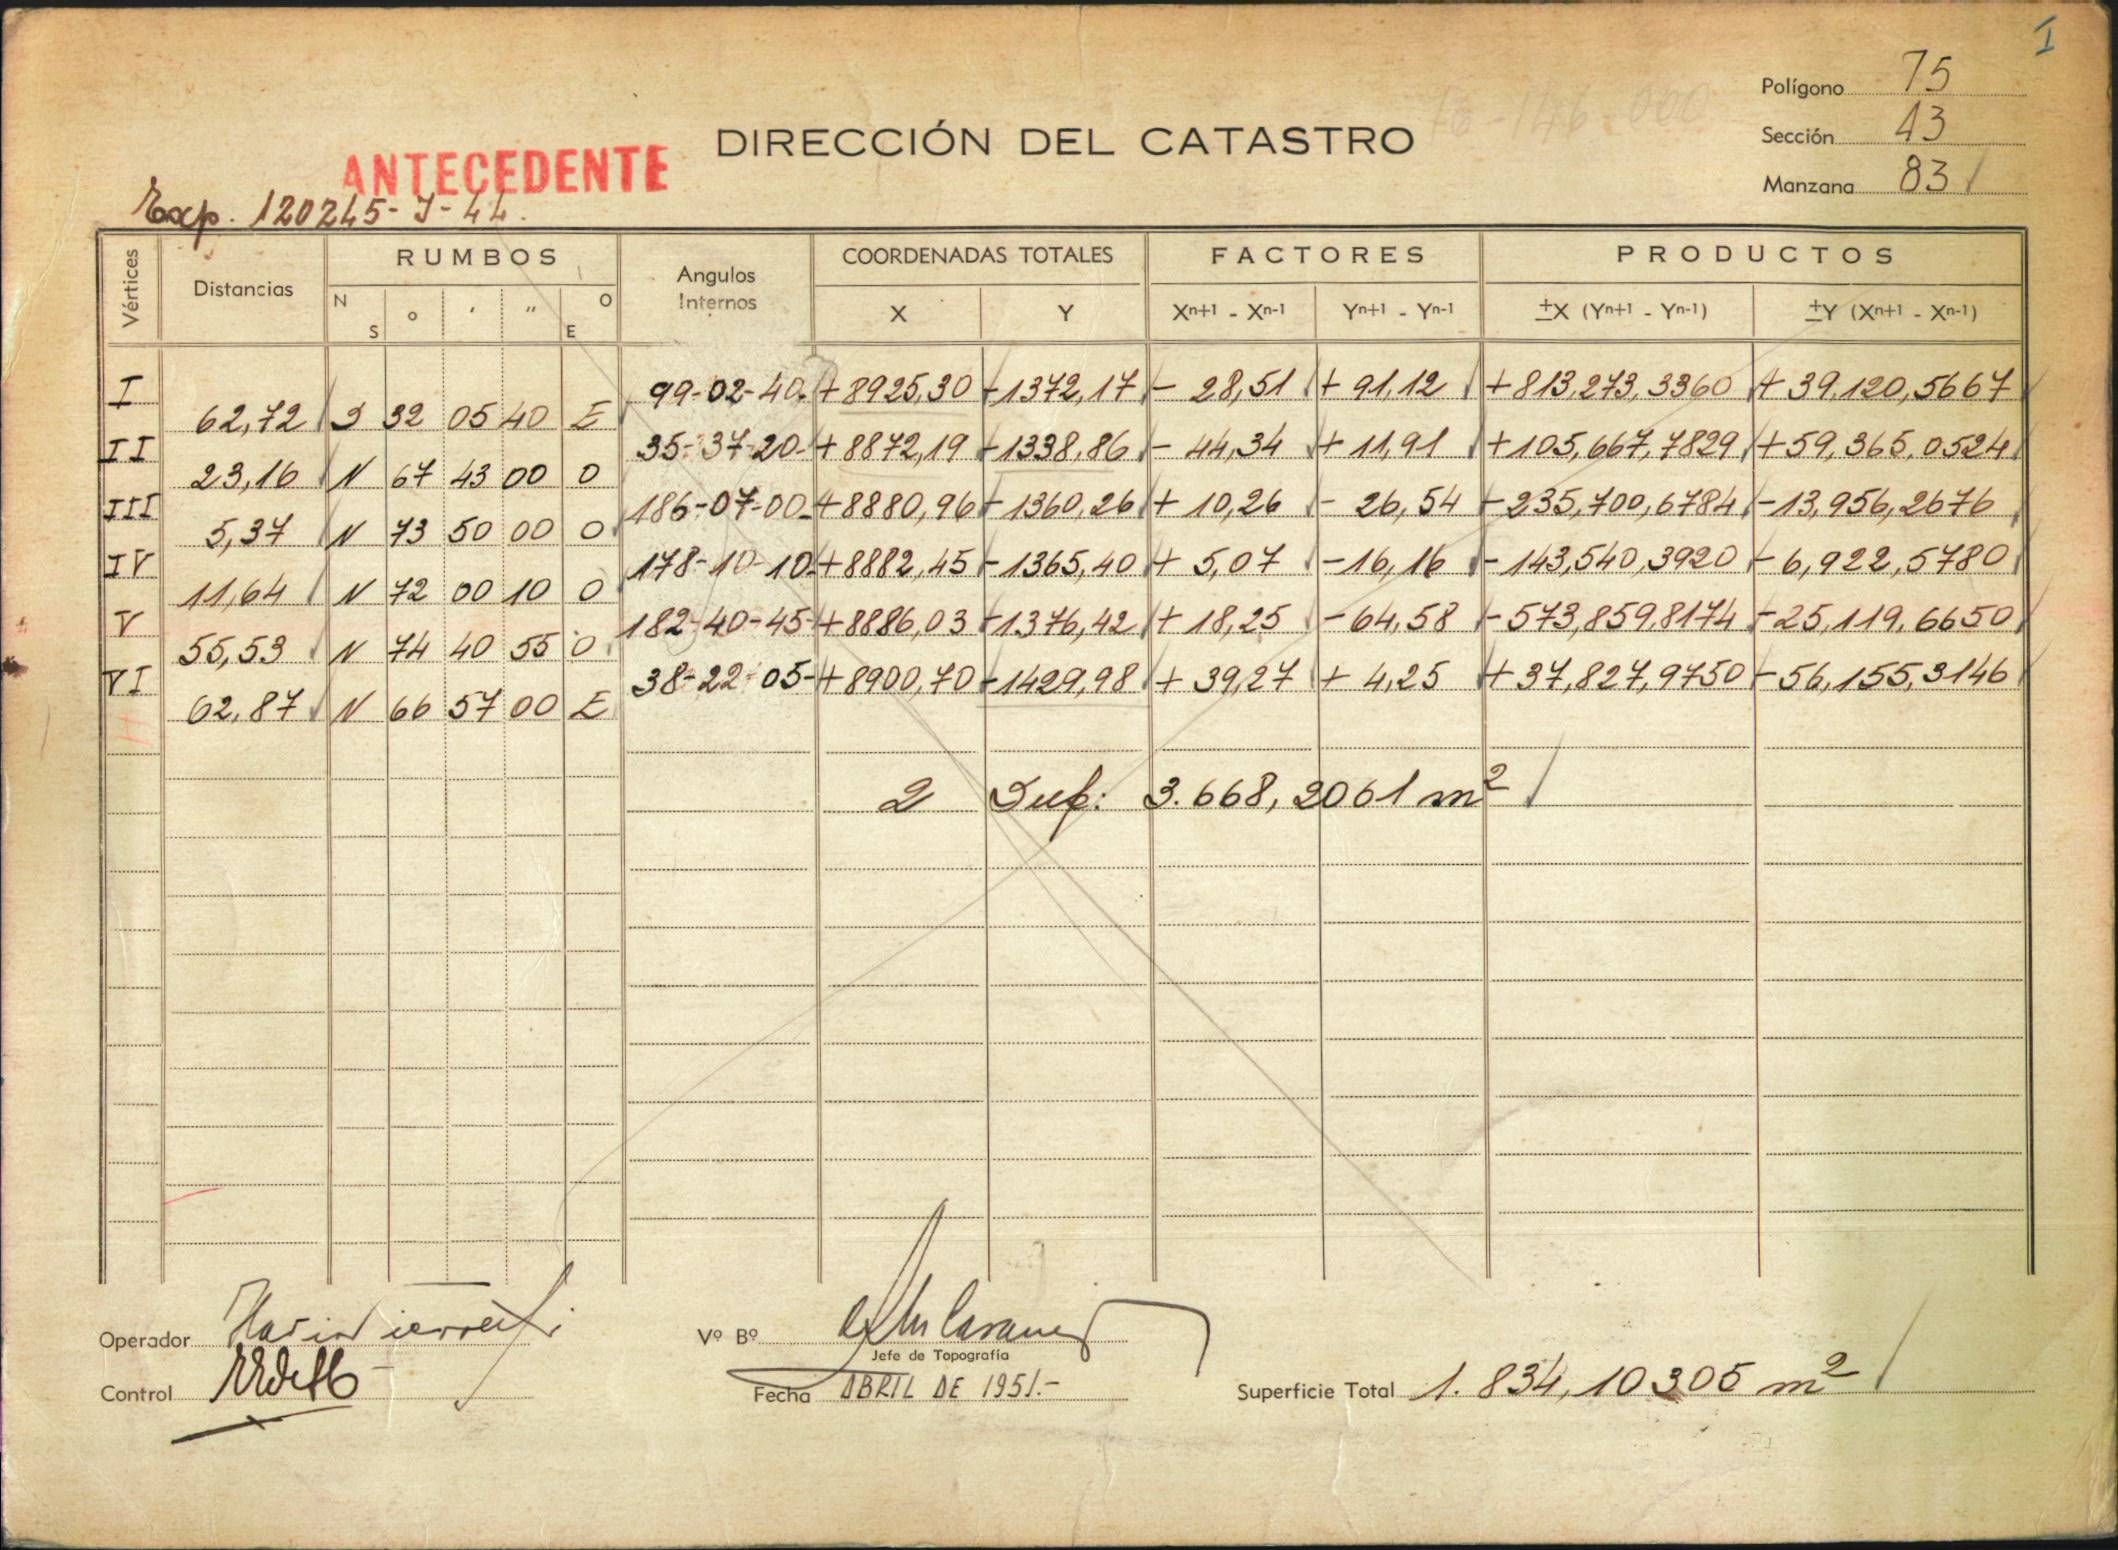 I
Polígono 75
76-146-000
DIRECCIÓN DEL CATASTRO
Sección 43
ANTECEDENTE
Manzana 83
Exp. 120245-J-44.
Vértices Distancias RUMBOS Angulos Internos COORDENADAS TOTALES FACTORES PRODUCTOS
N S o ' " O E X Y Xn+1 - Xn-1 Yn+1 - Yn-1 ±X (Yn+1 - Yn-1) ±Y (Xn+1 - Xn-1)
I 99-02-40 +8925,30 -1372,17 - 28,51 + 91,12 +813,273,3360 + 39,120,5667
62,72 S 32 05 40 E
II 35-37-20 +8872,19 -1338,86 - 44,34 + 11,91 +105,667,7829 +59,365,0524
23,16 N 67 43 00 O
III 186-07-00 +8880,96 -1360,26 + 10,26 - 26,54 -235,700,6784 -13,956,2676
5,37 N 73 50 00 O
IV 178-10-10 +8882,45 -1365,40 + 5,07 -16,16 -143,540,3920 - 6,922,5780
11,64 N 72 00 10 O
V 182-40-45 +8886,03 -1376,42 + 18,25 -64,58 -573,859,8174 -25,119,6650
55,53 N 74 40 55 O
VI 38-22-05 +8900,70 -1429,98 + 39,27 + 4,25 +37,827,9750 -56,155,3146
62,87 N 66 57 00 E
2 Sup: 3.668,2061 m²
Operador
Vº Bº
Jefe de Topografía
Control
Fecha ABRIL DE 1951.-
Superficie Total 1.834,10305 m²